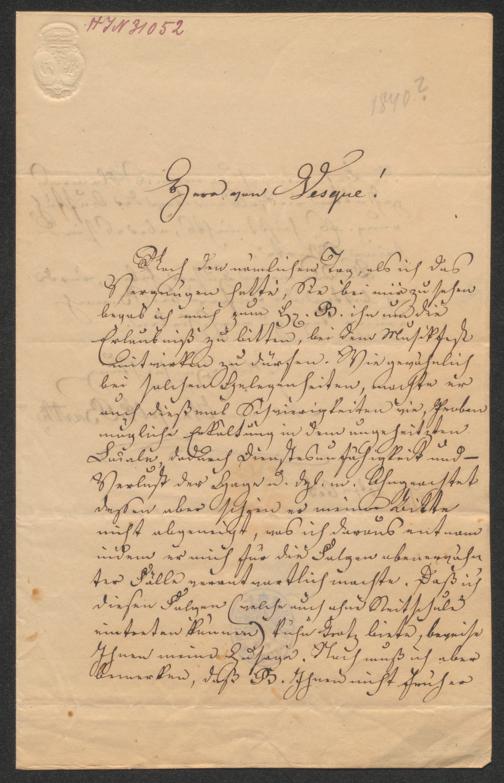 HIN 31052
1840?
Herr von Vesque!
Noch den nämlichen Tag, als ich das
Vergnügen hatte, Sie bei mir zu sehen
begab ich mich zum H. B. ihn um die
Erlaubniß zu bitten, bei dem Musikfest
mitwirken zu dürfen. Wie gewöhnlich
bei solchen Gelegenheiten, machte er
auch dießmal Schwierigkeiten wie, Proben
mögliche Erkältung in dem ungeheitzten
Lokale, dadurch Dienstesunfähigkeit und –
Verlust der Gage u. dgl. m. Ungeachtet
dessen aber schien er meiner Bitte
nicht abgeneigt, was ich daraus entnam
indem er mich für die Folgen obenerwähn
ter Fälle verantwortlich machte. Daß ich
diesen Folgen (welche auch ohne Reitschule
eintreten können) kühn Trotz biete, beweise
Ihnen meine Zusage. Noch muß ich aber
bemerken, daß B. Ihnen nicht früher